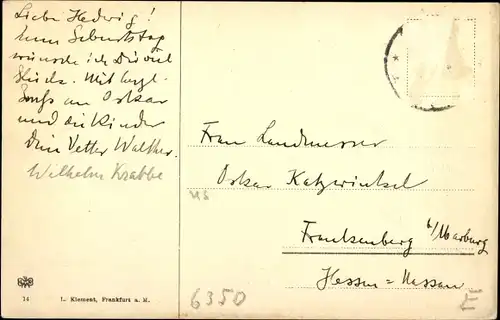 Liebe Hedwig!
Zum Geburtstag
wünsche ich Dir viel
Glück. Mit herzl.
Gruß an Oskar
und die Kinder
Dein Vetter Walther.
Wilhelm Krabbe
Frau Landmesser
Oskar Katzwinkel
Frankenberg b/Marburg
Hessen=Nassau
6350
14 L. Klement, Frankfurt a. M.